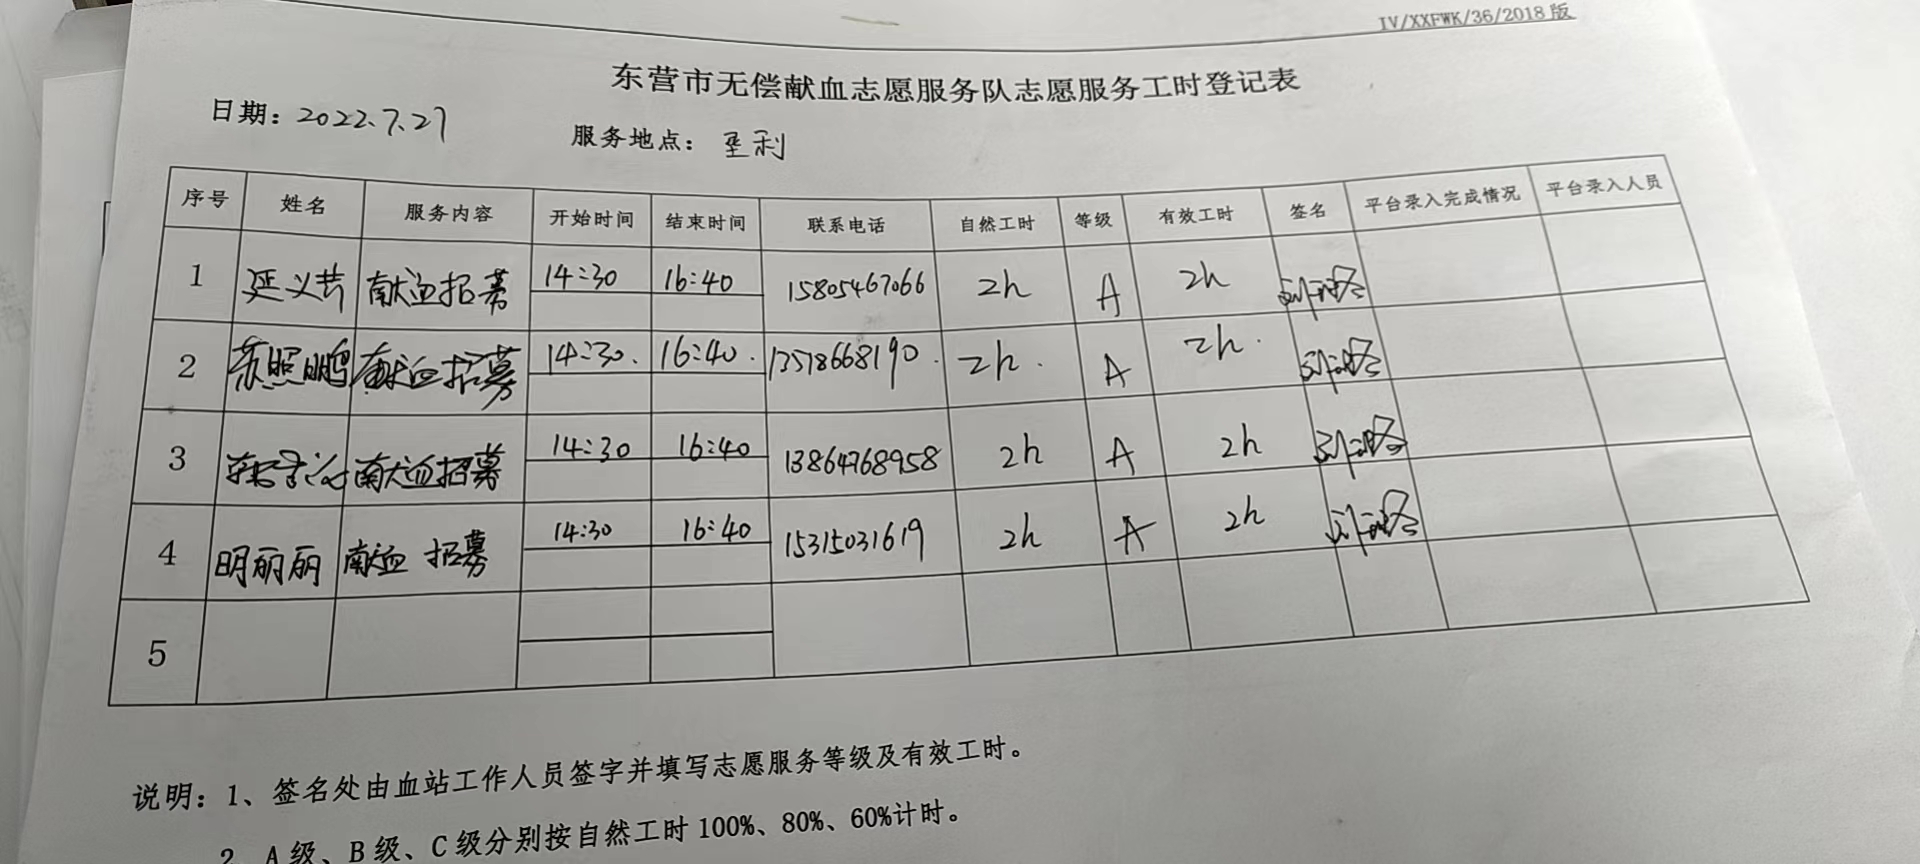 IV/XXFWK/36/2018版
东营市无偿献血志愿服务队志愿服务工时登记表
日期：2022.7.27 服务地点：垦利
序号 姓名 服务内容 开始时间 结束时间 联系电话 自然工时 等级 有效工时 签名 平台录入完成情况 平台录入人员
1 延义芹 献血招募 14:30 16:40 15805467066 2h A 2h
2 燕照鹏 献血招募 14:30. 16:40. 13518668190. 2h. A 2h.
3 献血招募 14:30 16:40 13864768958 2h A 2h
4 明丽丽 献血招募 14:30 16:40 15315031619 2h A 2h
5
说明：1、签名处由血站工作人员签字并填写志愿服务等级及有效工时。
2、A级、B级、C级分别按自然工时100%、80%、60%计时。